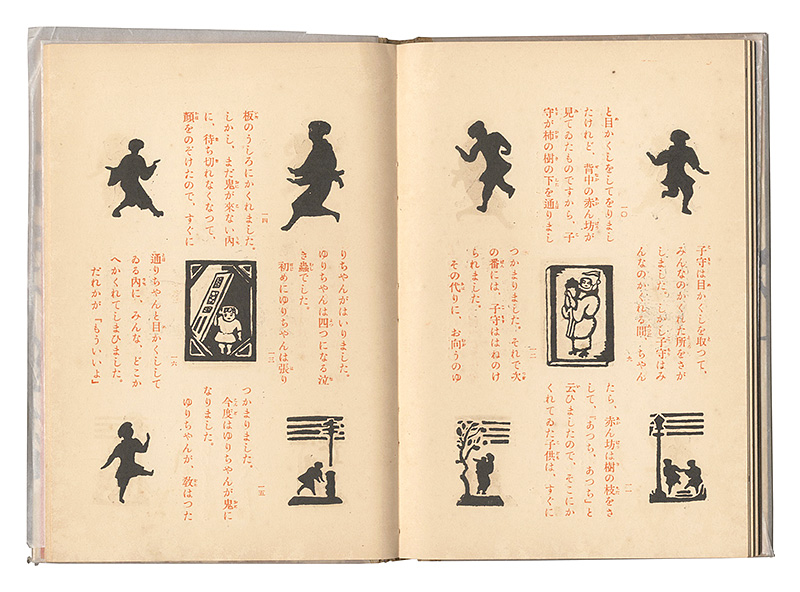 子守は目かくしを取つて、
みんなのかくれた所をさが
しました。しかし子守はみ
んなのかくれる間、ちやん
九
と目かくしをしてをりまし
たけれど、背中の赤ん坊が
見てゐたものですから、子
守が柿の樹の下を通りまし
一〇
たら、赤ん坊は樹の枝をさ
して、『あつち、あつち』と
云ひましたので、そこにか
くれてゐた子供は、すぐに
一一
つかまりました。それで次
の番には、子守ははねのけ
られました。
その代りに、お向うのゆ
一二
りちやんがはいりました。
ゆりちやんは四つになる泣
き蟲でした。
初めにゆりちやんは張り
一三
板のうしろにかくれました。
しかし、まだ鬼が來ない內
に、待ち切れなくなつて、
顏をのぞけたので、すぐに
一四
つかまりました。
今度はゆりちやんが鬼に
なりました。
ゆりちやんが、敎はつた
一五
通りちやんと目かくしして
ゐる內に、みんな、どこか
へかくれてしまひました。
だれかが、「もういいよ」
一六